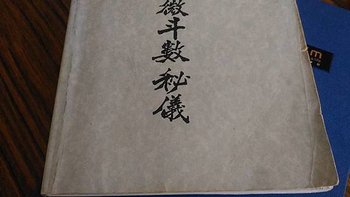 微斗數秘儀
m